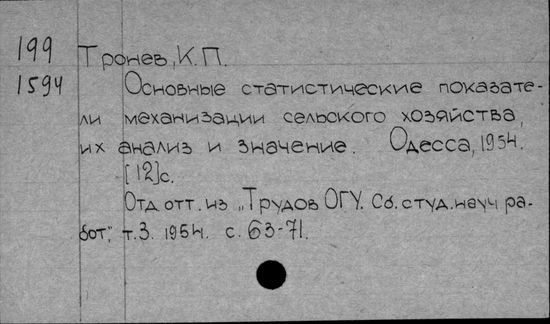 199 Тронев, К.П.
1594 Основные статистические показате-
ли механизации сельского хозяйства,
их анализ и значение. Одесса, 1954.
[12]с.
Отд. отт. из „Трудов ОГУ. Сб. студ. науч ра-
бот", т.3. 1954. с. 63-71.